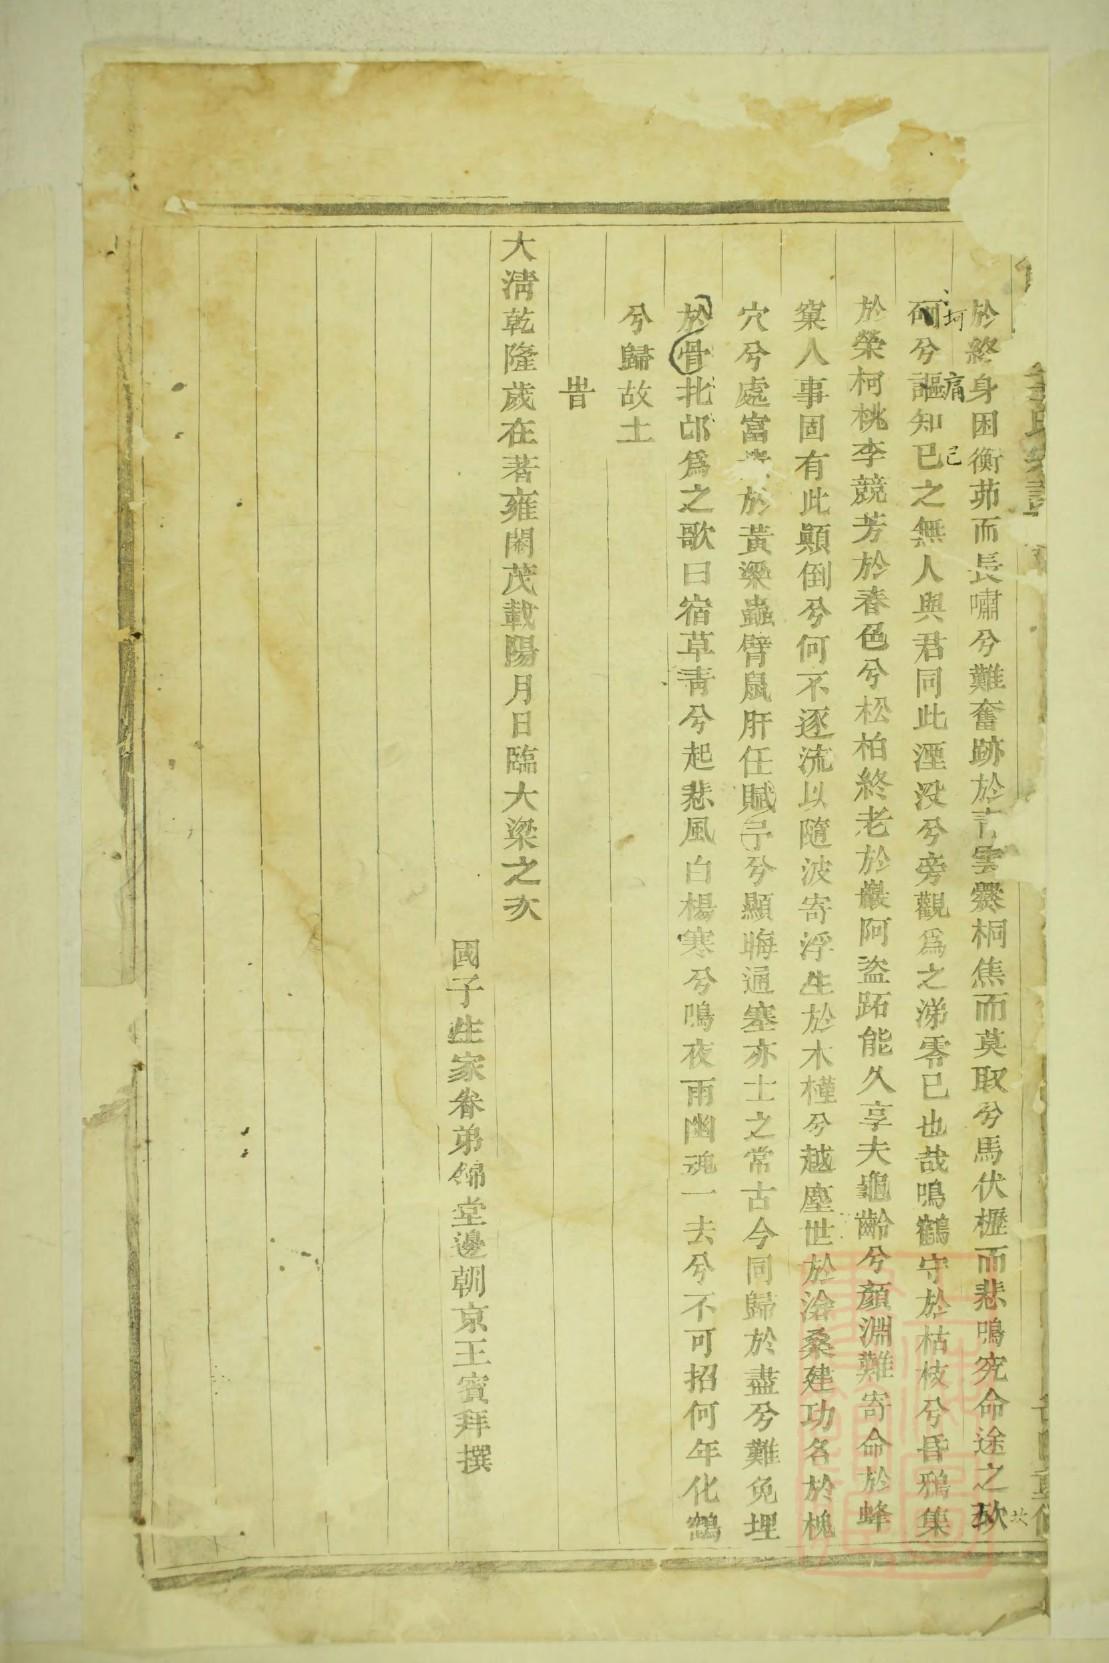 於終身困衡茆而長嘯兮難奮跡於青雲爨桐焦而莫取兮馬伏櫪而悲鳴究命途之坎
坷兮謳知已之無人與君同此湮没兮旁觀爲之涕零已也哉鳴鶴守於枯枝兮昏鴉集
於榮柯桃李競芳於春色兮松柏終老於巖阿盜跖能久享夫龜齡兮顏淵難寄命於蜂
窠人事固有此顛倒兮何不逐流以隨波寄浮生於木槿兮越塵世於滄桑建功名於槐
穴兮處富貴於黃粱蟲臂鼠肝任賦予兮顯晦通塞亦士之常古今同歸於盡兮難免埋
於骨北邙爲之歌曰宿草青兮起悲風白楊寒兮鳴夜雨幽魂一去兮不可招何年化鶴
兮歸故土
旹
大淸乾隆歲在著雍閹茂載陽月日臨大梁之次
國子生家眷弟錦堂邊朝京王賓拜撰
坎
坷
痛
己